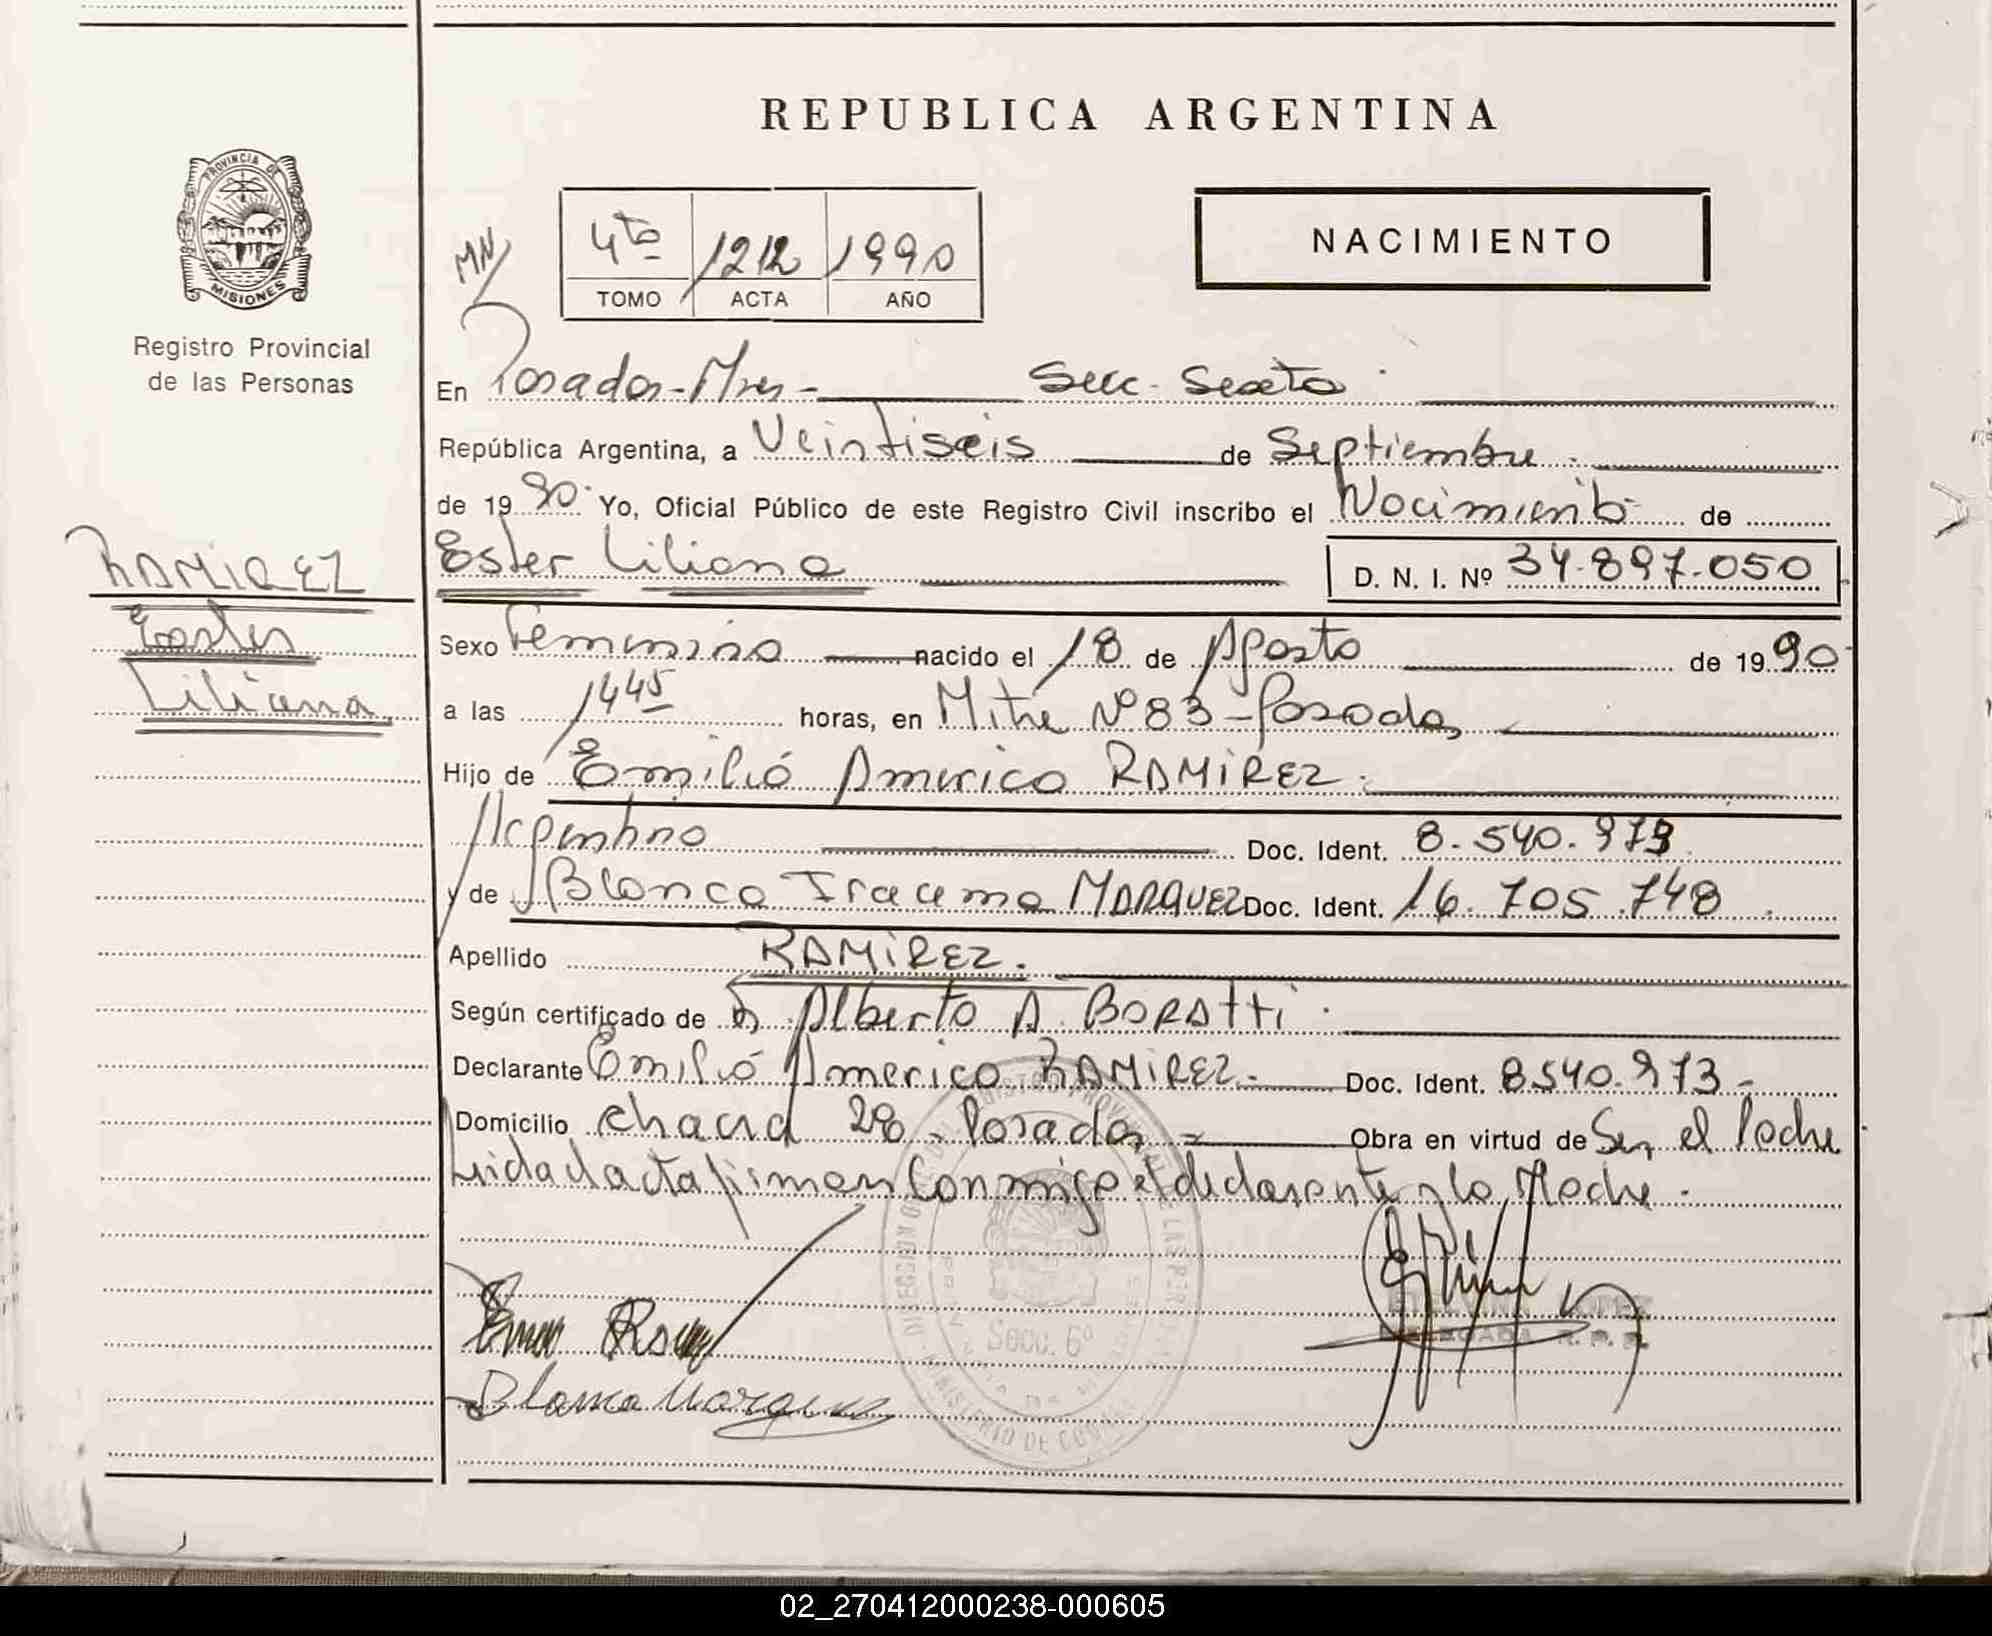 REPUBLICA ARGENTINA
PROVINCIA DE
MISIONES
Registro Provincial
de las Personas
MN
4to 1212 1990
TOMO ACTA AÑO
NACIMIENTO
En Posadas - Mnes - Secc. Sexta
República Argentina, a Veintiseis de Septiembre
de 1990 Yo, Oficial Público de este Registro Civil inscribo el Nacimiento de
Ester Liliana D. N. I. Nº 34.897.050
RAMIREZ
Ester
Liliana
Sexo Femenino nacido el 18 de Agosto de 1990
a las 1445 horas, en Mitre Nº 83 - Posadas
Hijo de Emilio Americo RAMIREZ.
Argentino Doc. Ident. 8.540.973
y de Blanca Iracema MARQUEZ Doc. Ident. 16.705.748
Apellido RAMIREZ.
Según certificado de Dr. Alberto A. BORATTI.
Declarante Emilio Americo RAMIREZ. Doc. Ident. 8540.973 -
Domicilio chacra 28 - Posadas Obra en virtud de Ser el Padre
Leida el acta firman Conmigo el declarante y la Madre.
Secc. 6º
LOPEZ
Blanca Marquez
02_270412000238-000605